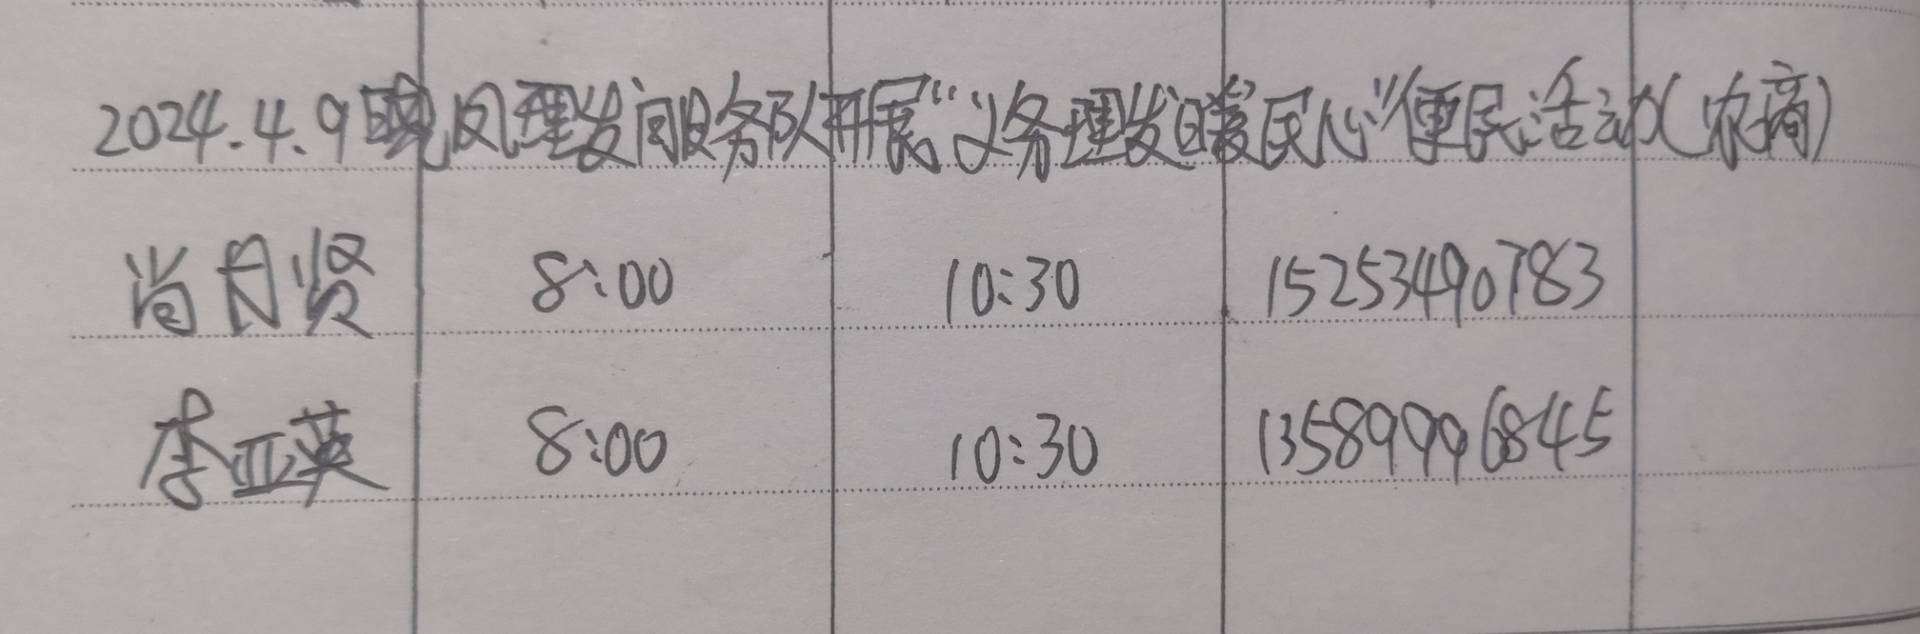 2024.4.9晚风理发间服务队开展“义务理发暖民心”便民活动(农商)
肖月贤 8:00 10:30 15253490783
李亚英 8:00 10:30 13589996845